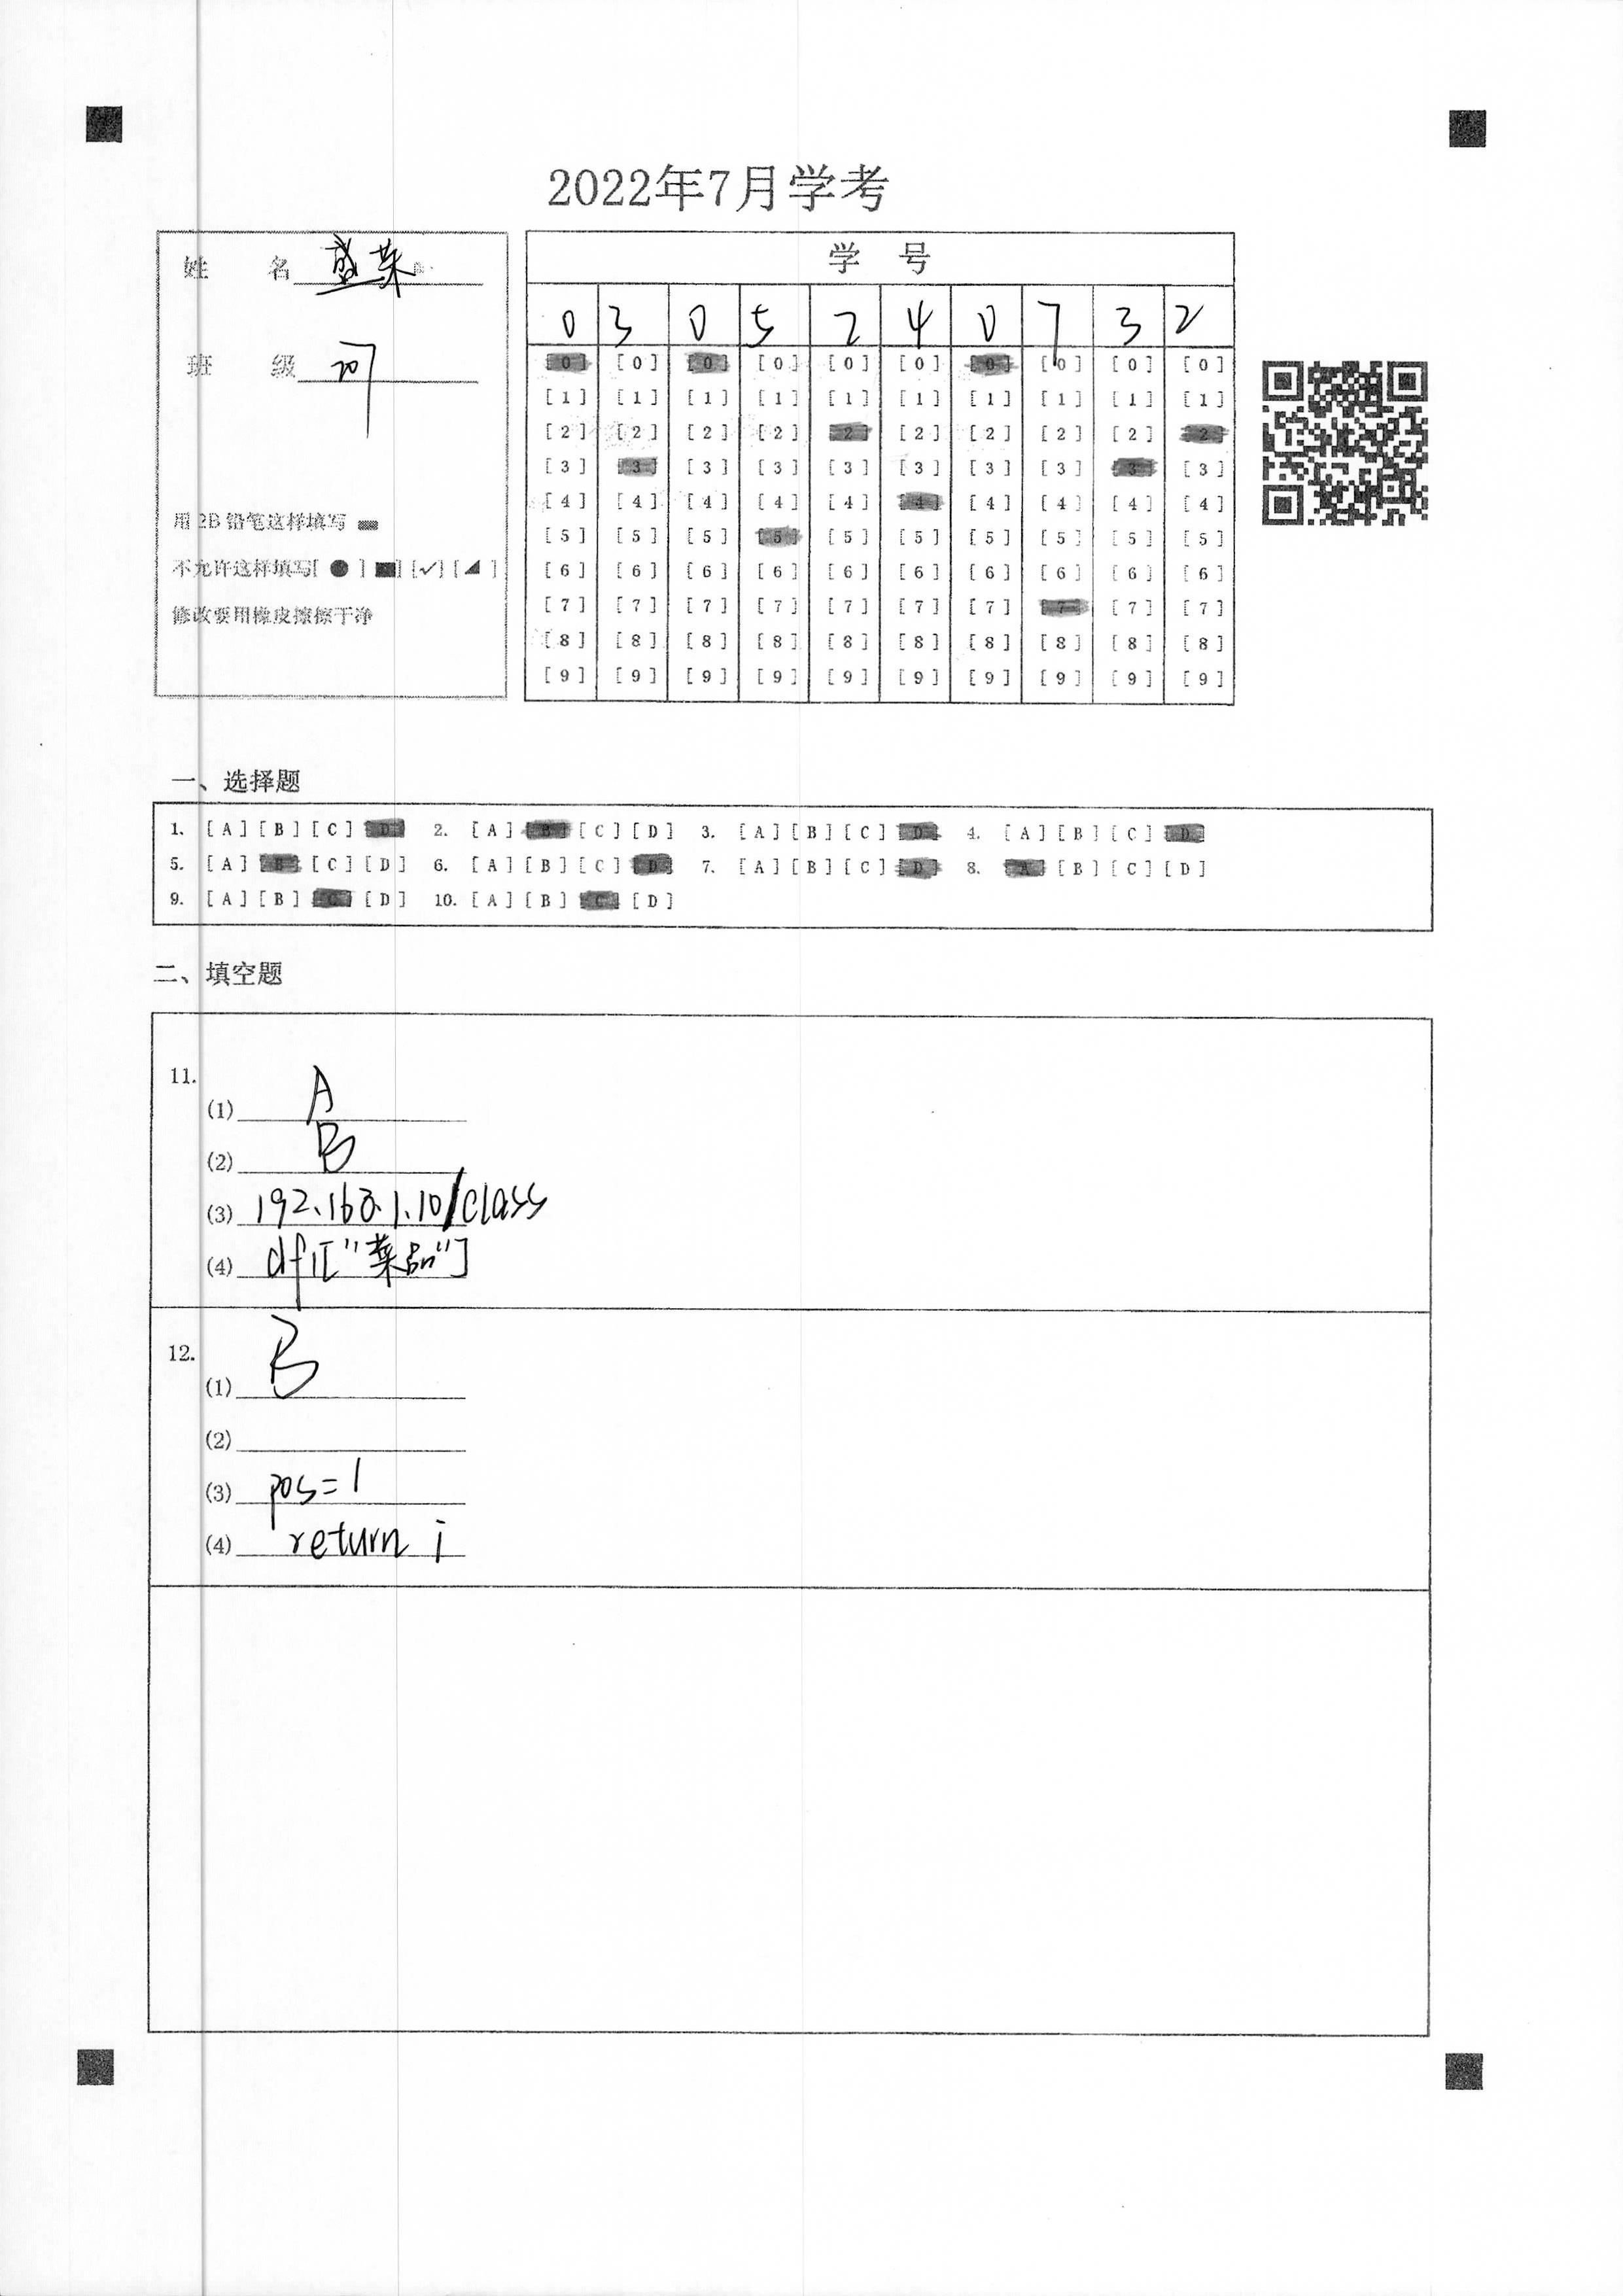 2022年7月学考
姓 名 盛菜
班 级
用2B铅笔这样填写
不允许这样填写[ ● ] ■] [✓] [ ◢ ]
修改要用橡皮擦擦干净
学 号
0 3 0 5 2 4 0 7 3 2
[0] [0] [0] [0] [0] [0] [0] [0] [0] [0]
[1] [1] [1] [1] [1] [1] [1] [1] [1] [1]
[2] [2] [2] [2] [2] [2] [2] [2] [2] [2]
[3] [3] [3] [3] [3] [3] [3] [3] [3] [3]
[4] [4] [4] [4] [4] [4] [4] [4] [4] [4]
[5] [5] [5] [5] [5] [5] [5] [5] [5] [5]
[6] [6] [6] [6] [6] [6] [6] [6] [6] [6]
[7] [7] [7] [7] [7] [7] [7] [7] [7] [7]
[8] [8] [8] [8] [8] [8] [8] [8] [8] [8]
[9] [9] [9] [9] [9] [9] [9] [9] [9] [9]
一、选择题
1. [A] [B] [C] [D] 2. [A] [B] [C] [D] 3. [A] [B] [C] [D] 4. [A] [B] [C] [D]
5. [A] [B] [C] [D] 6. [A] [B] [C] [D] 7. [A] [B] [C] [D] 8. [A] [B] [C] [D]
9. [A] [B] [C] [D] 10. [A] [B] [C] [D]
二、填空题
11.
(1) A
(2) B
(3) 192.168.1.10/class
(4) df1["菜品"]
12.
(1) B
(2)
(3) pos=1
(4) return i